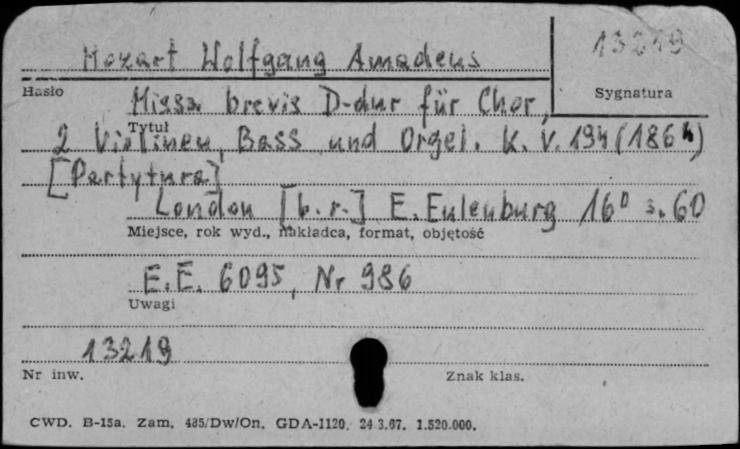 13219
Mozart Wolfgang Amadeus
Hasło
Sygnatura
Missa brevis D-dur für Chor,
Tytuł
2 Violinen, Bass und Orgel. K. V. 194 (186h)
[Partytura]
London [b. r.] E. Eulenburg 16⁰ s. 60
Miejsce, rok wyd., nakładca, format, objętość
E. E. 6095, Nr 986
Uwagi
13219
Nr inw.
Znak klas.
CWD. B-15a. Zam. 485/Dw/On. GDA-1120. 24.3.67. 1.520.000.